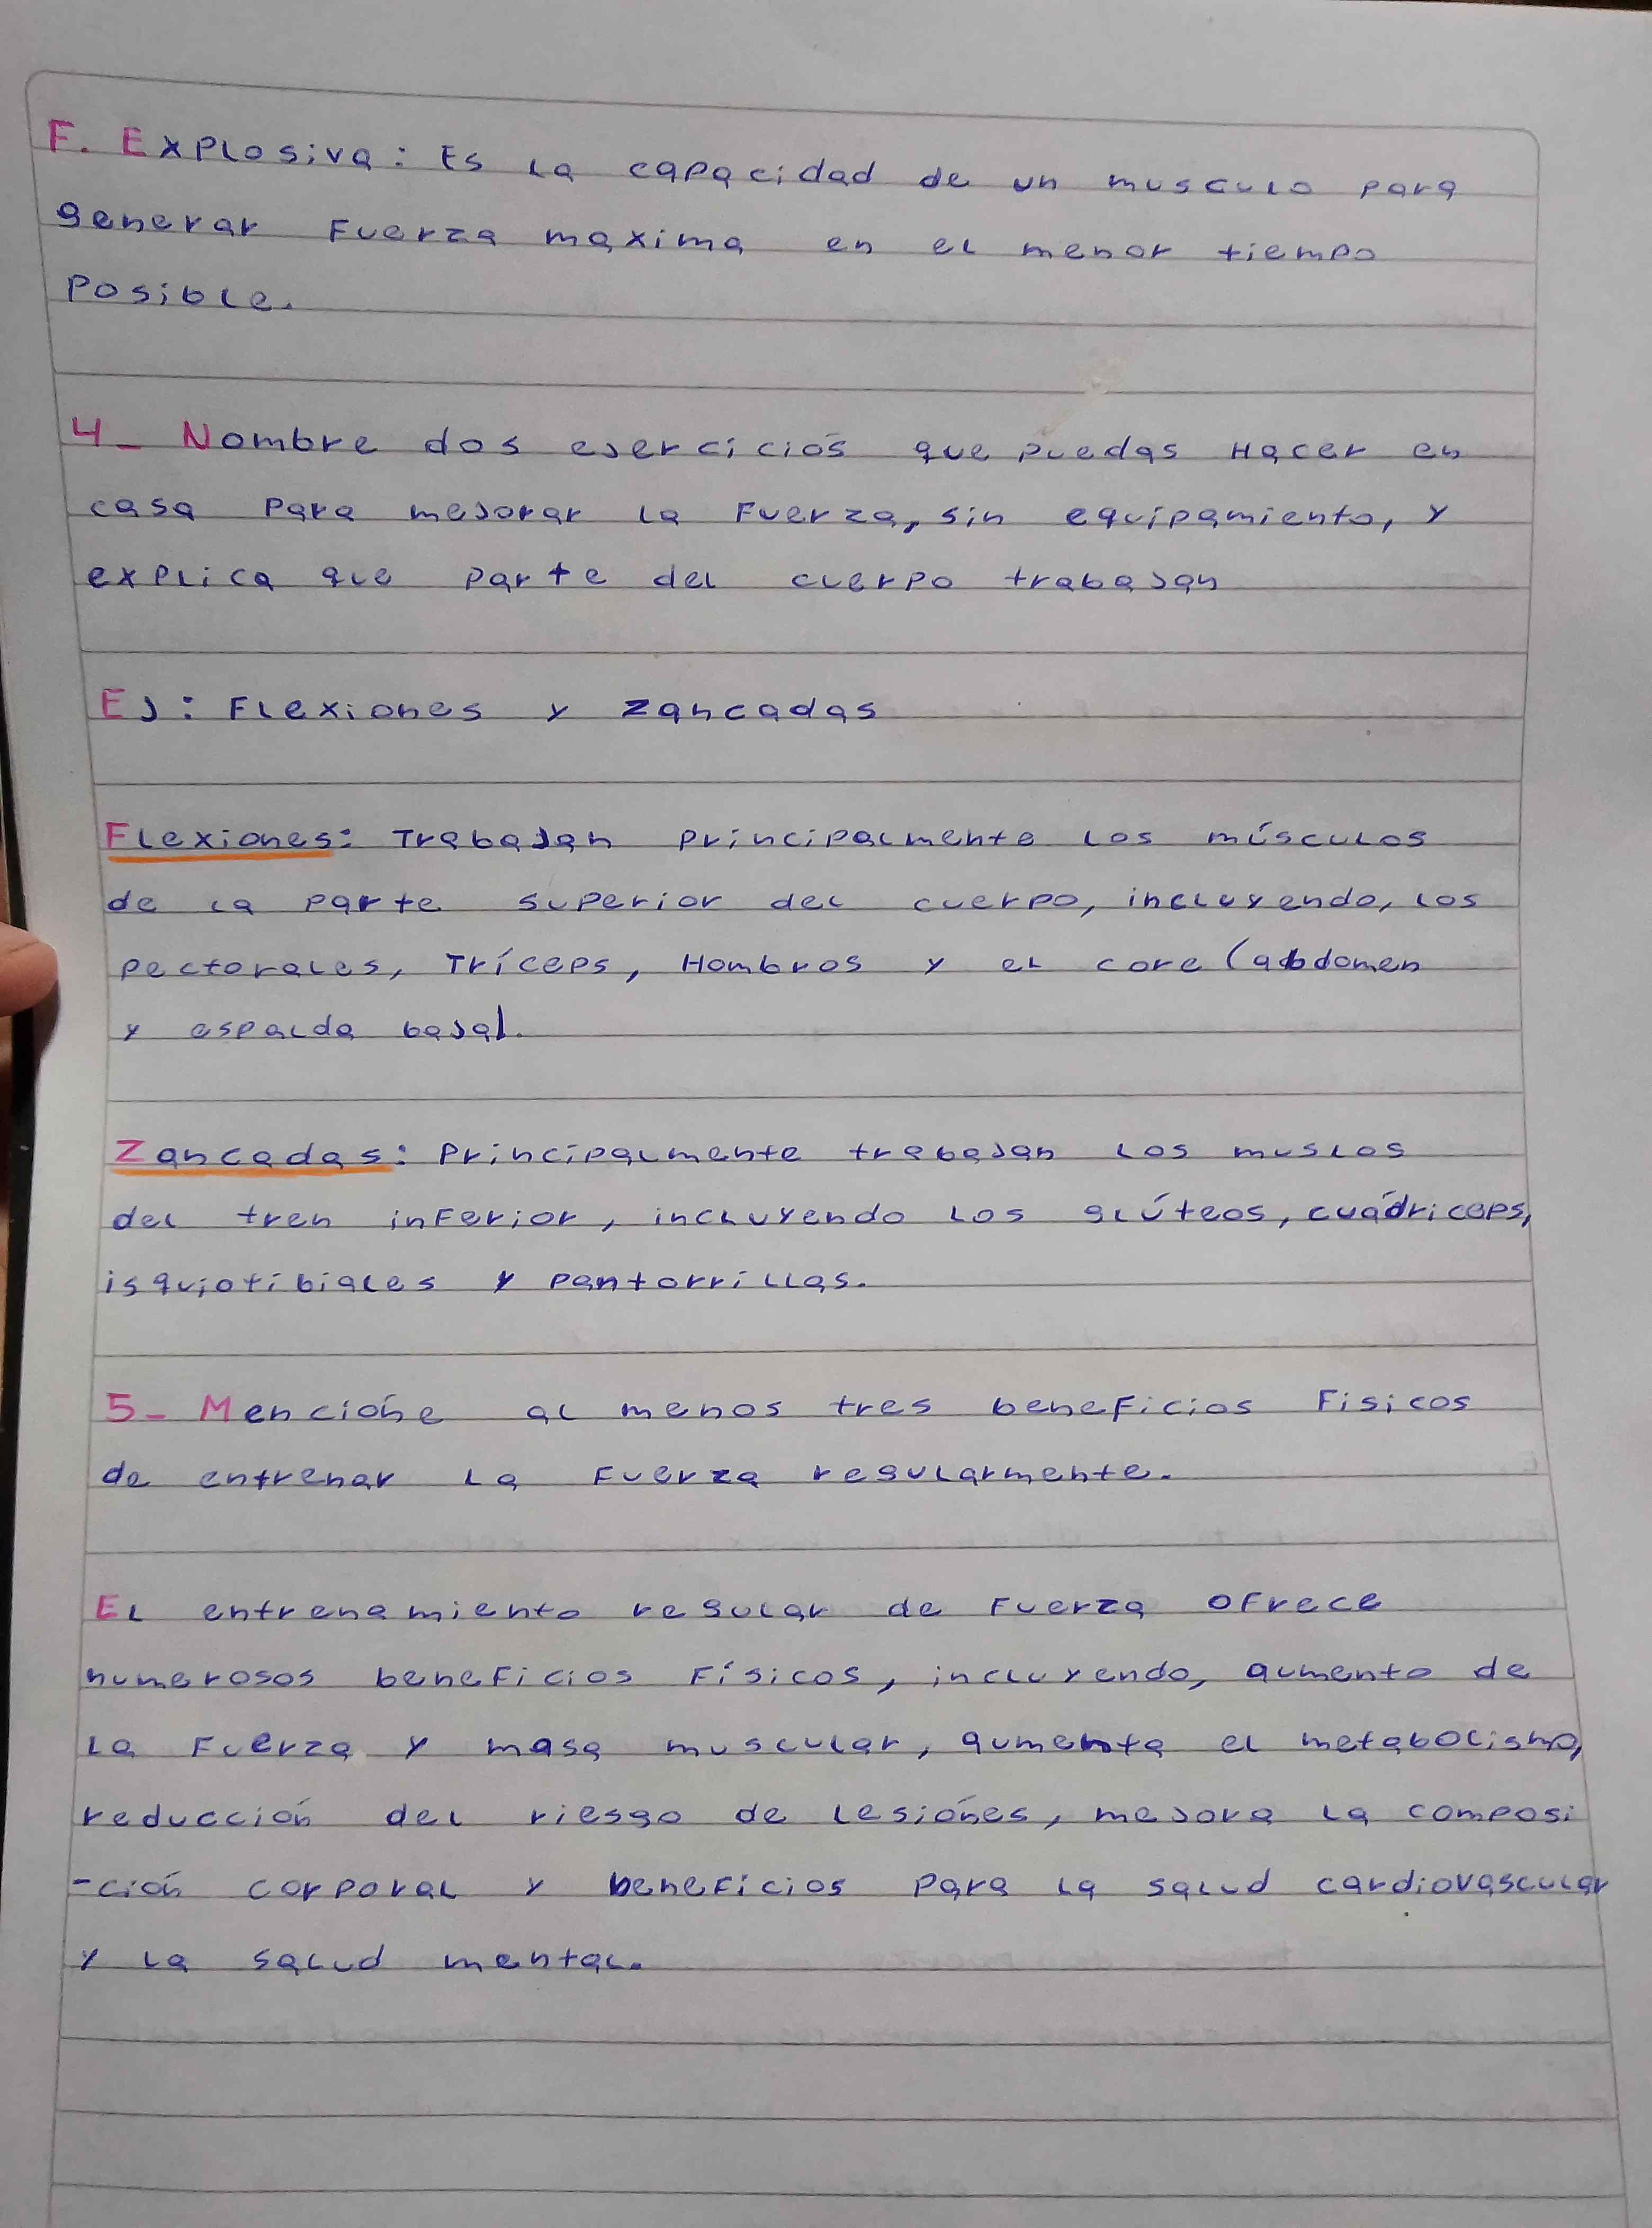 F. Explosiva: Es la capacidad de un musculo para
generar Fuerza maxima en el menor tiempo
Posible.
4- Nombre dos ejercicios que puedas Hacer en
casa Para mejorar la Fuerza, sin equipamiento, y
explica que parte del cuerpo trabajan
EJ: Flexiones y zancadas
Flexiones: Trabajan principalmente los músculos
de la parte superior del cuerpo, incluyendo, los
pectorales, Tríceps, Hombros y el core (abdomen
y espalda bajal.
Zancadas: Principalmente trabajan los muslos
del tren inferior, incluyendo los glúteos, cuádriceps,
isquiotibiales y pantorrillas.
5- Mencióne al menos tres beneficios Fisicos
de entrenar la Fuerza regularmente.
El entrenamiento regular de Fuerza ofrece
numerosos beneficios Físicos, incluyendo, aumento de
la Fuerza y masa muscular, aumenta el metabolismo,
reducción del riesgo de lesiónes, mejora la composi
-ción corporal y beneficios para la salud cardiovascular
y la salud mental.